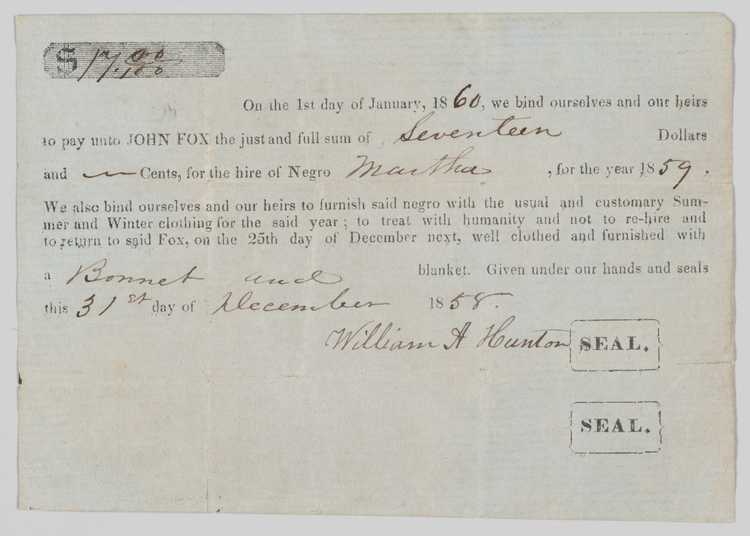 $17.00/100
On the 1st day of January, 1860, we bind ourselves and our heirs
to pay unto JOHN FOX the just and full sum of Seventeen Dollars
and — Cents, for the hire of Negro Martha, for the year 1859.
We also bind ourselves and our heirs to furnish said negro with the usual and customary Sum-
mer and Winter clothing for the said year ; to treat with humanity and not to re-hire and
to return to said Fox, on the 25th day of December next, well clothed and furnished with
a Bonnet and blanket. Given under our hands and seals
this 31st day of December 1858.
William A Hunton SEAL.
SEAL.